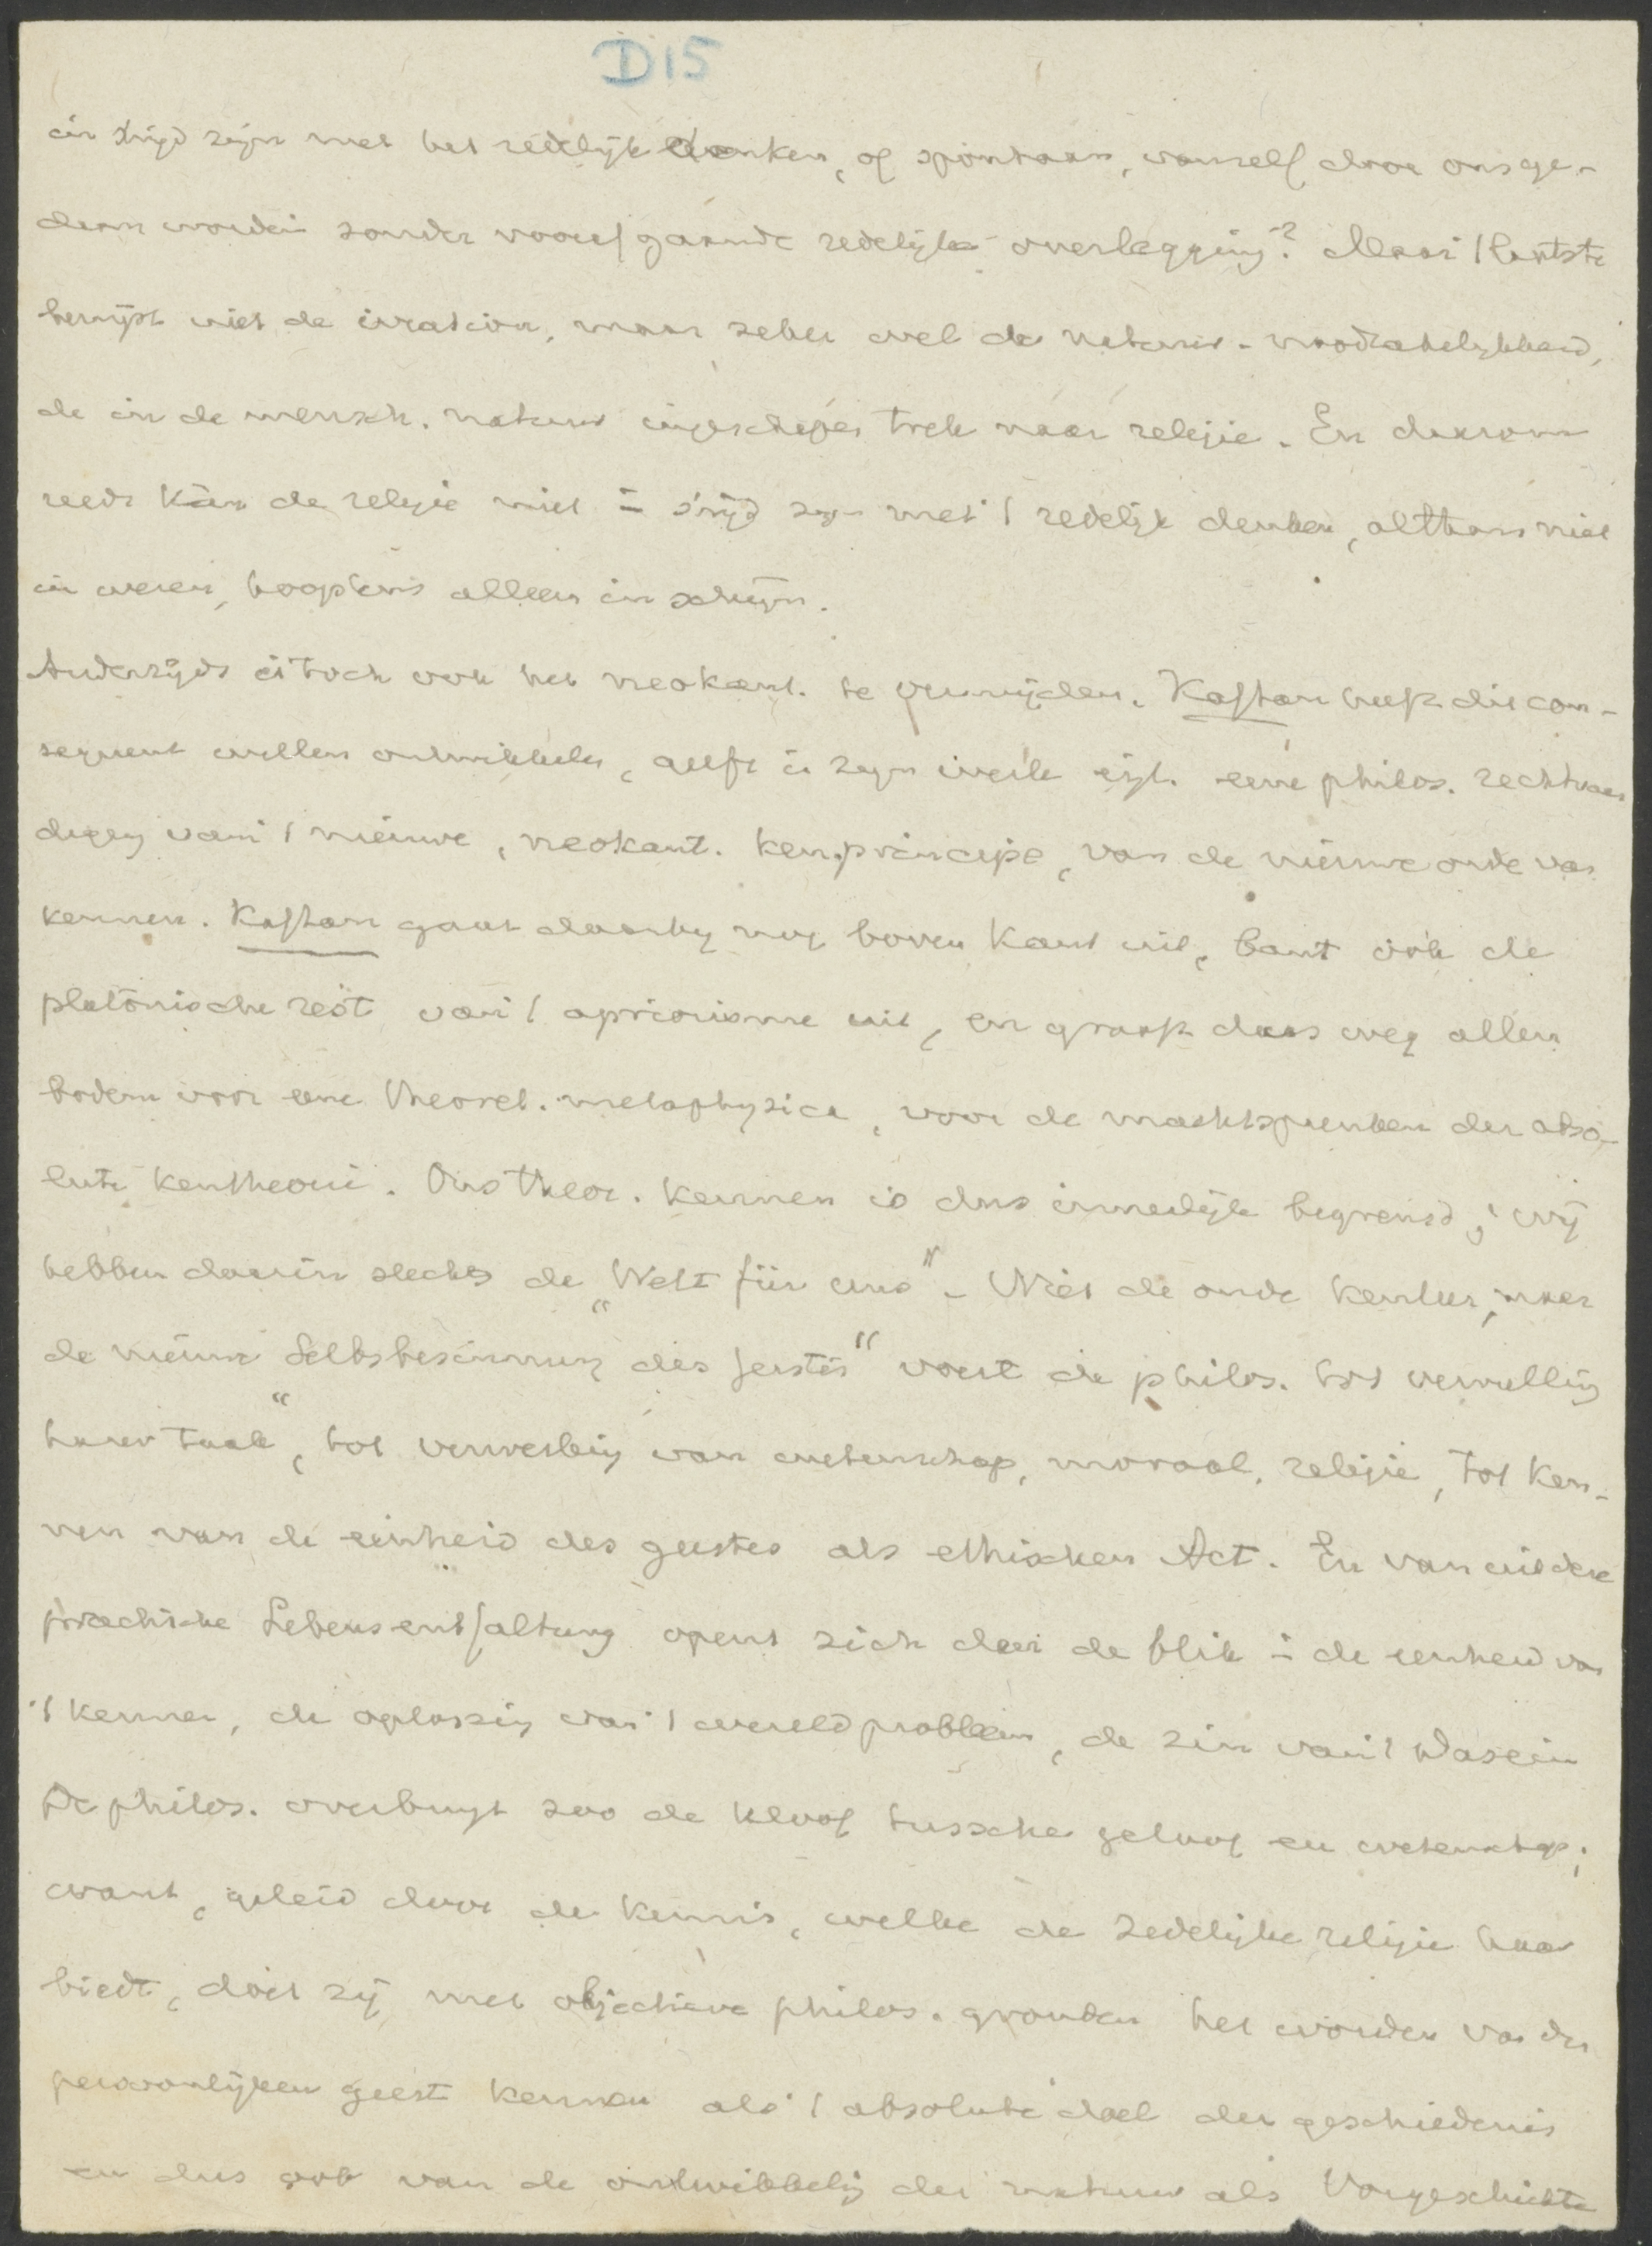 D15
in strijd zijn met het redelijk denken, of spontaan, vanzelf door ons ge-
daan worden zonder voorafgaande redelijke overlegging? Maar 't laatste
bewijst niet de irratio, maar zeker wel de natuur-noodzakelijkheid,
de in de mensch. natuur ingeschapen trek naar religie. En daarom
reeds kan de religie niet in strijd zijn met 't redelijk denken, althans niet
in wezen, hoogstens alleen in schijn.
Anderzijds is toch ook het neokant. te vermijden. Kaftan heeft dit con-
sequent willen ontwikkelen, geeft in zijn werk eigl. eene philos. rechtvaar
diging van 't nieuwe, neokant. kenprincipe, van de nieuwe orde van
kennen. Kaftan gaat daarbij nog boven Kant uit, bant ook de
platonische rest van 't apriorisme uit, en graaft dus weg allen
bodem voor eene theoret. metaphysica, voor de machtspreuken der abso-
lute kentheorie. Ons theor. kennen is dus innerlijk begrensd; wij
hebben daarin slechts de „Welt für uns". Niet de oude kenleer, maar
de nieuwe „Selbsbesinnung des Geistes" voert de philos. tot vervulling
harer taak, tot verwerking van wetenschap, moraal, religie, tot ken-
nen van de eenheid des geestes als ethischen Act. En van uit deze
practische Lebensentfaltung opent zich dan de blik in de eenheid van
't kennen, de oplossing van 't wereldprobleem, de zin van 't Dasein
De philos. overbrugt zoo de kloof tussche geloof en wetenschap;
want, geleid door de kennis, welke de zedelijke religie haar
biedt, doet zij met objectieve philos. gronden het worden van den
persoonlijken geest kennen als 't absolute doel der geschiedenis
en dus ook van de ontwikkeling der natuur als Vorgeschichte